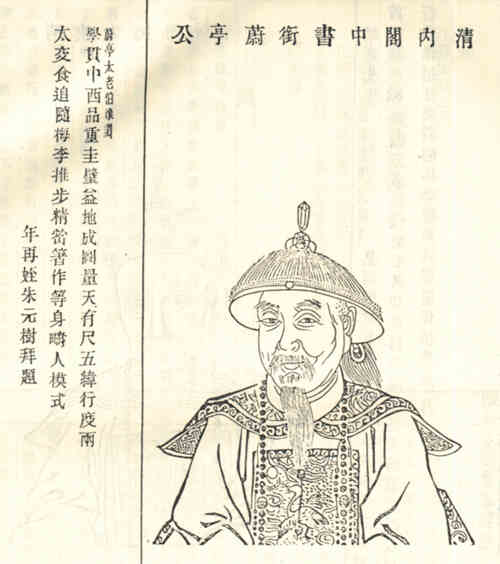 清內閣中書銜蔚亭公
蔚亭太老伯
學貫中西品重圭璧益地成圖量天有尺五緯行度兩
太交食追隨梅李推步精密著作等身疇人模式
年再姪朱元樹拜題